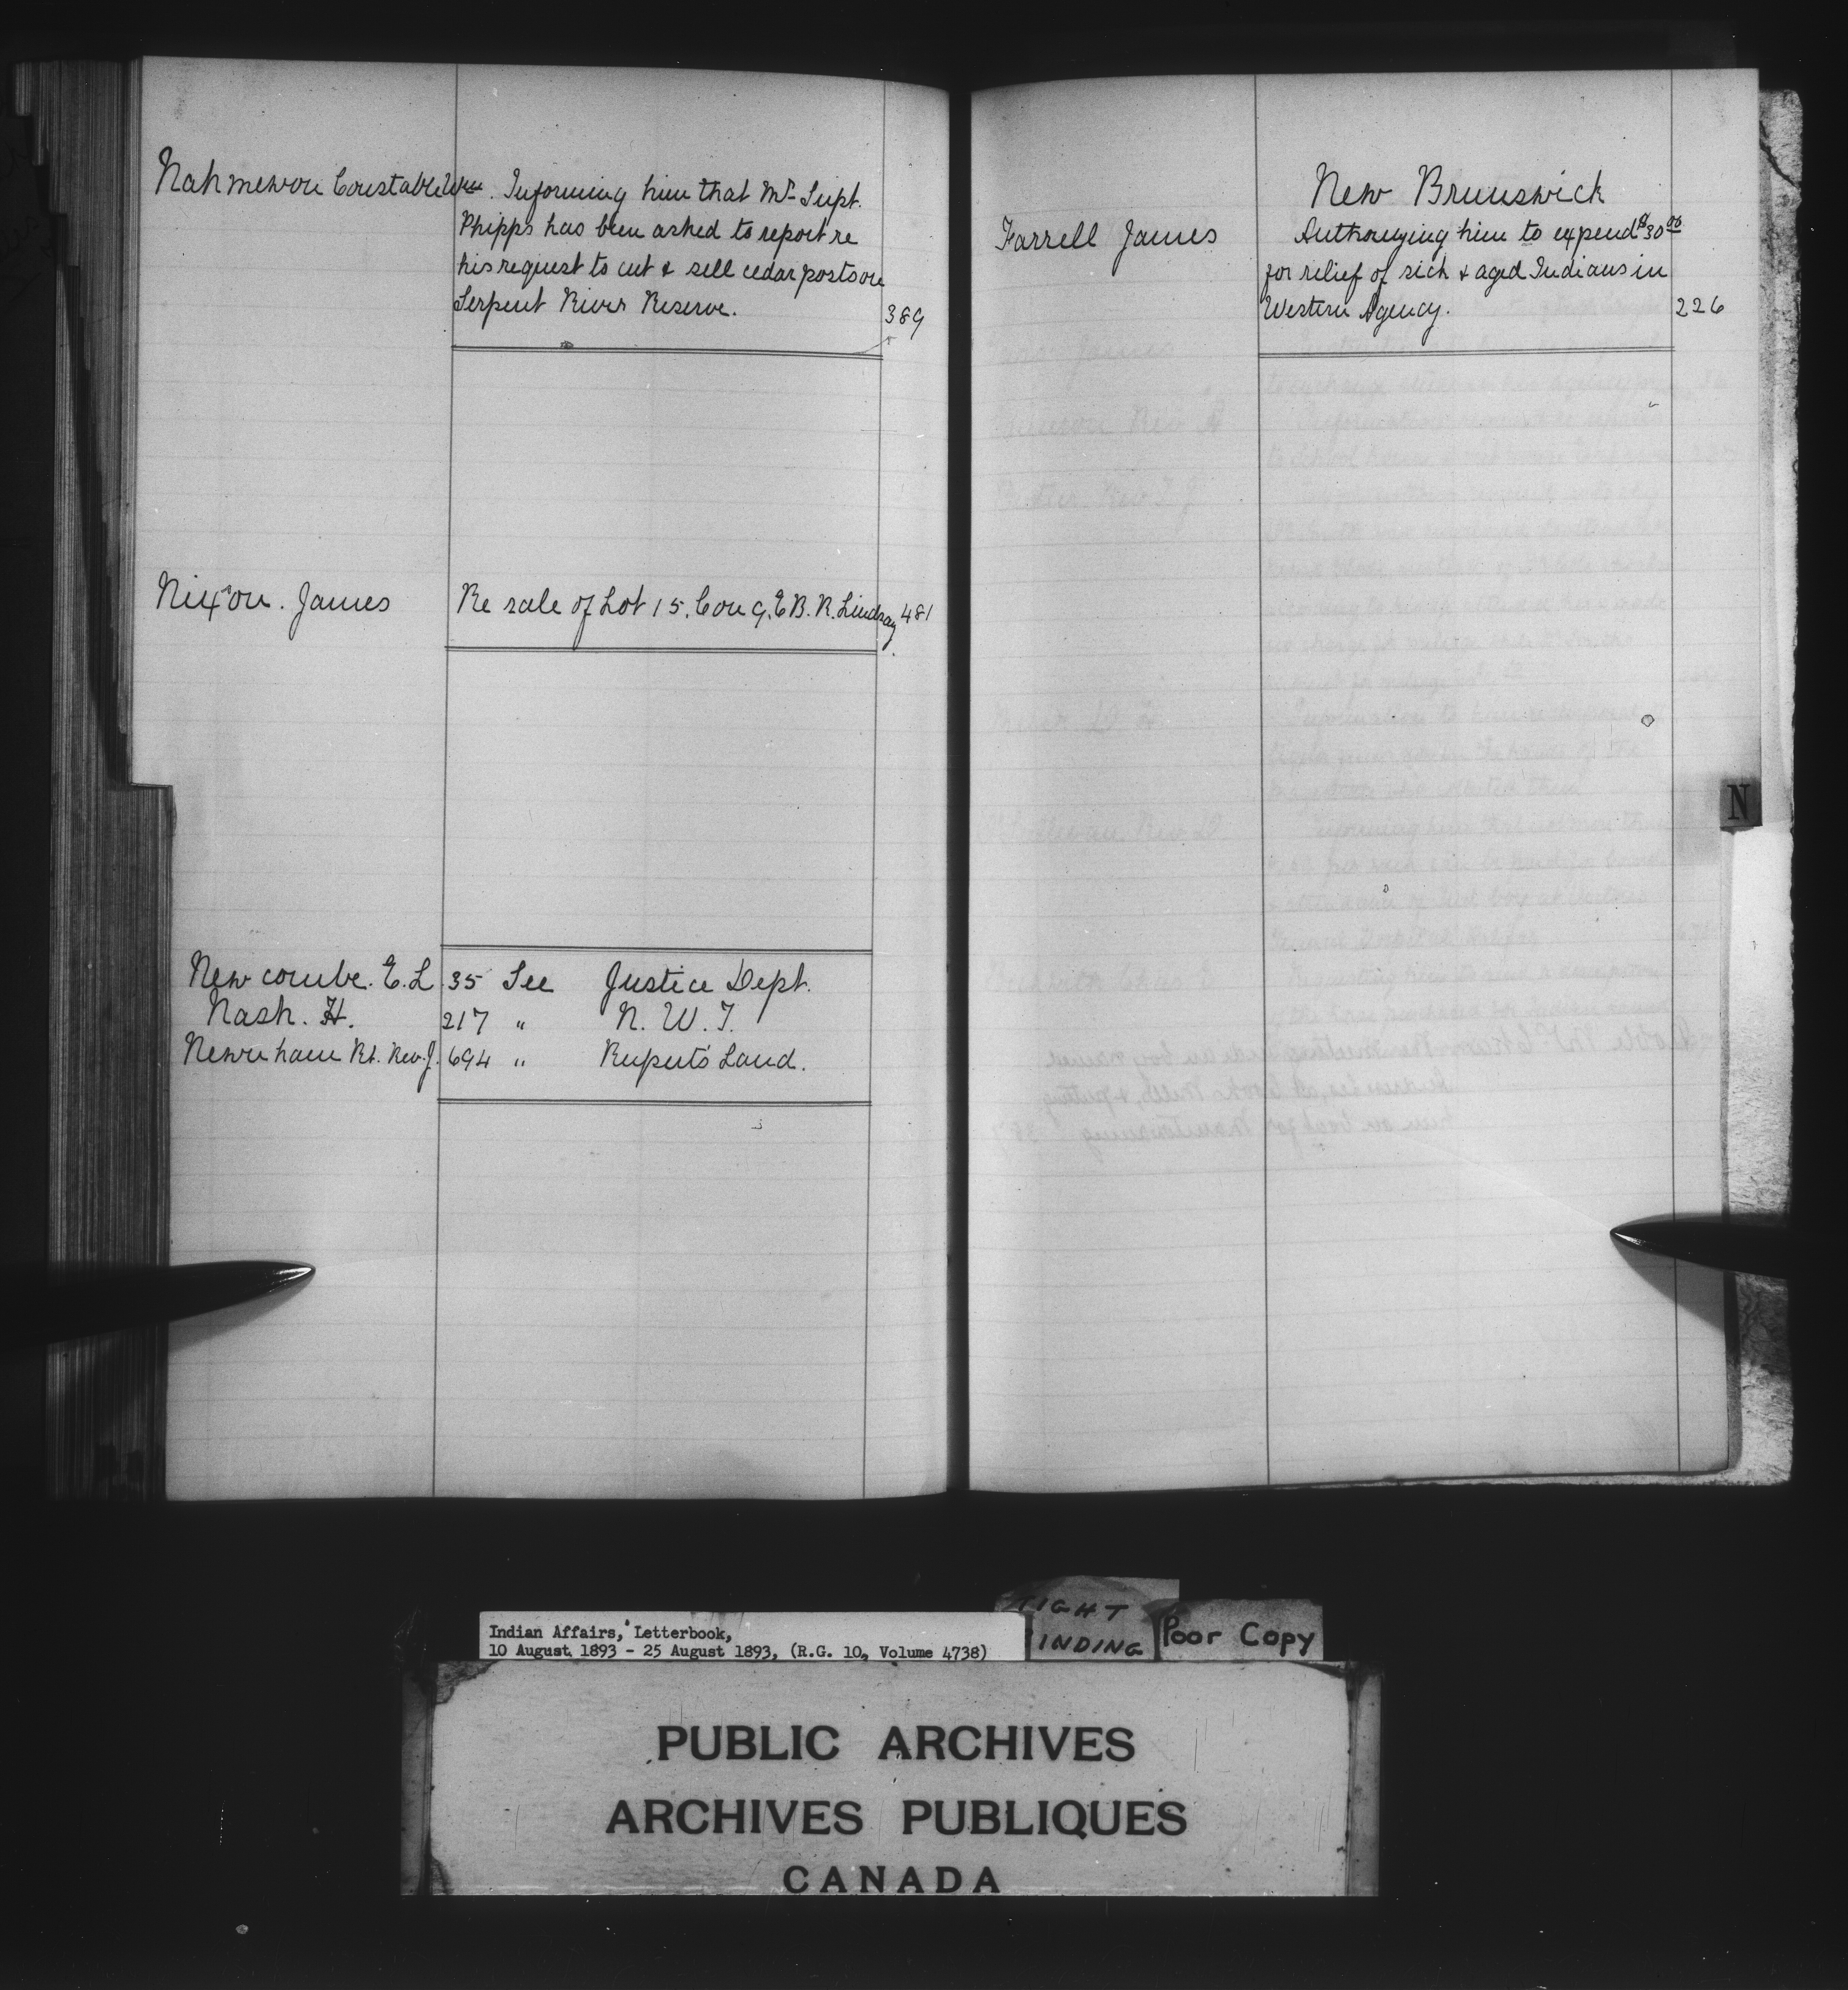 Nahmewon Constable Wm. Informing him that Mr. Supt.
Phipps has been asked to report re
his request to cut & sell cedar posts on
Serpent River Reserve. 389
Nixon. James Re sale of Lot 15. Con 9. E B. R. Lindsay 481
Newcombe. E. L. 35 See Justice Dept.
Nash. H. 217 " N. W. T.
Newnham Rt. Rev. J. 694 " Ruperts Land.
New Brunswick
Farrell James Authorizing him to expend $30.00
for relief of sick & aged Indians in
Western Agency. 226
N
Indian Affairs, Letterbook,
10 August 1893 - 25 August 1893, (R.G. 10, Volume 4738)
TIGHT
BINDING
Poor Copy
PUBLIC ARCHIVES
ARCHIVES PUBLIQUES
CANADA